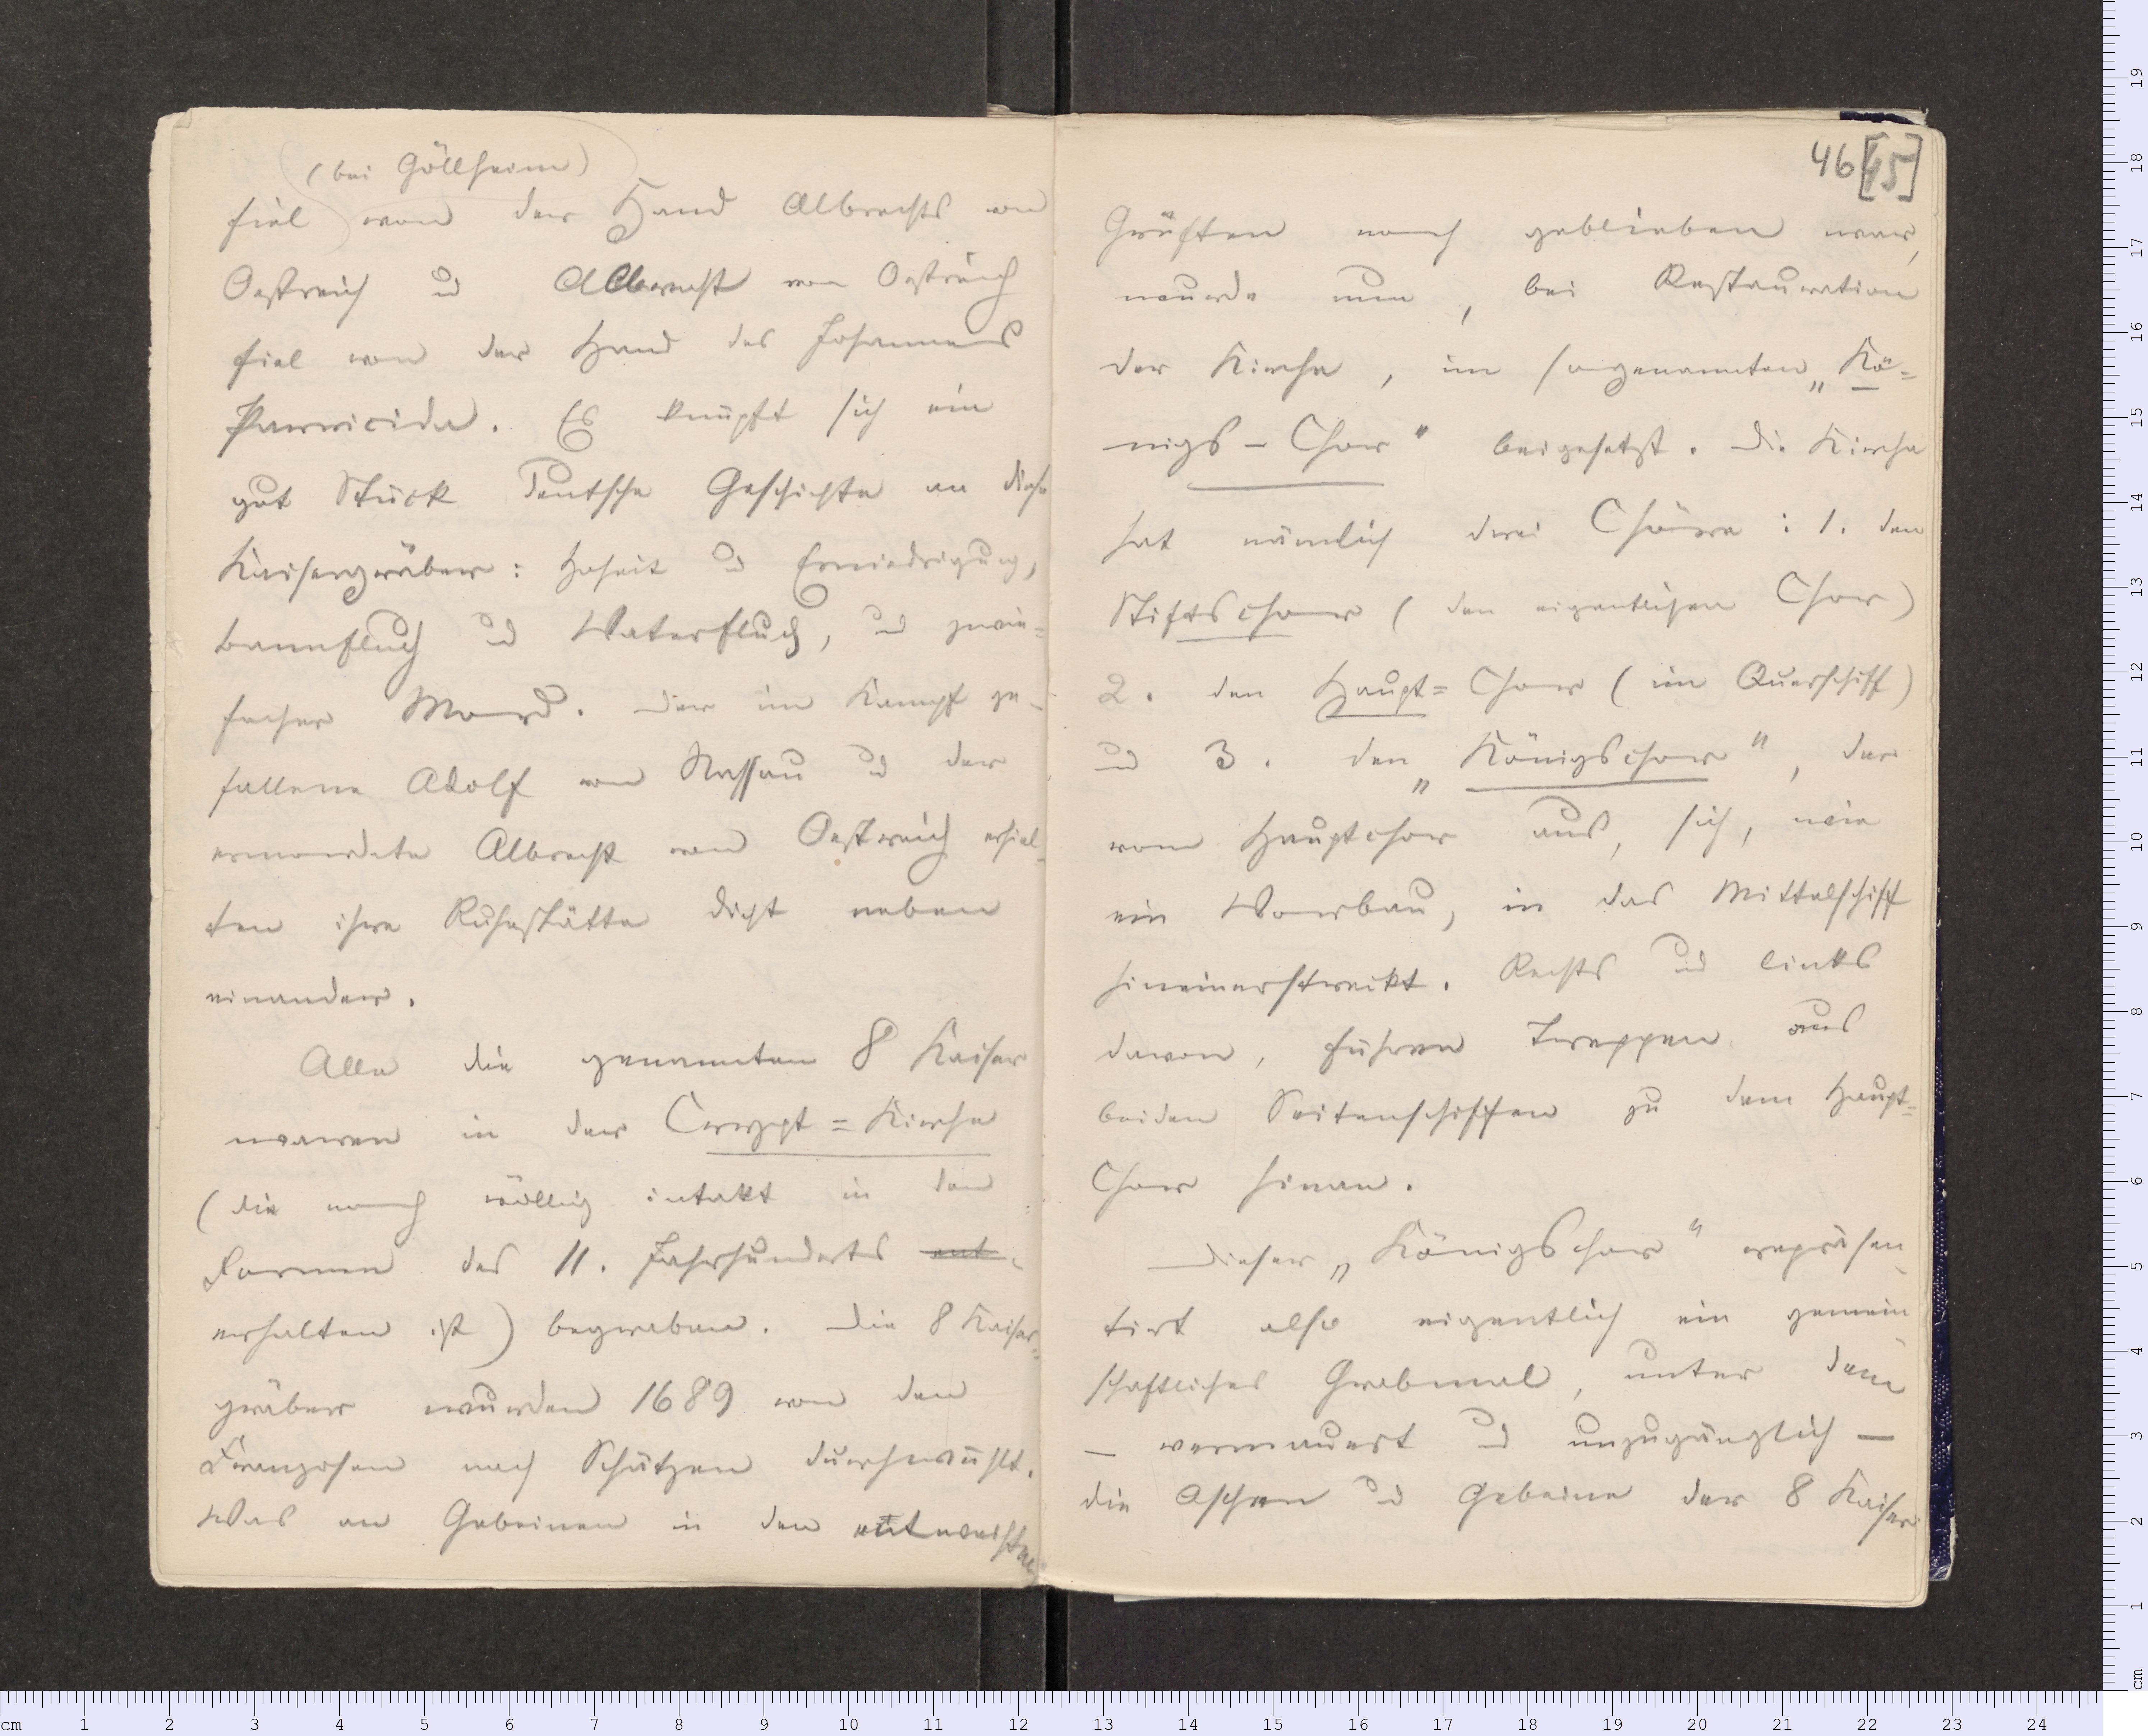 (bei Göllheim)
fiel von der Hand Albrechts von
Oestreich u Albrecht von Oestreich
fiel von der Hand des Johannes
Parricida. Es knüpft sich ein
gut Stück deutsche Geschichte an diese
Kaisergräber: Hoheit u Erniedrigung,
Bannfluch und Vaterfluch, und zwie-
facher Mord. Der im Kampf ge-
fallene Adolf von Nassau u der
ermordete Albrecht von Oestreich erhiel-
ten ihre Ruhestätte dicht neben
einander.
Alle die genannten 8 Kaiser
waren in der Crypt=Kirche
(die noch völlig intakt in den
Formen des 11. Jahrhunderts ent-
erhalten ist) begraben. Die 8 Kaiser-
gräber wurden 1689 von den
Franzosen nach Schätzen durchwühlt.
Was an Gebeinen in den entweihten
46[45]
Grüften noch geblieben war,
wurde nun, bei Restauration
der Kirche, im sogenannten „Kö-
nigs-Chor" beigesetzt. Die Kirche
hat nämlich drei Chöre: 1. den
Stiftschor (den eigentlichen Chor)
2. den Haupt=Chor (im Querschiff)
und 3. den „Königschor", der
vom Hauptchor aus, sich, wie
ein Vorbau, in das Mittelschiff
hineinerstreckt. Rechts und links
davon, führen Treppen aus
beiden Seitenschiffen zu dem Haupt-
Chor hinan.
Dieser „Königschor" repräsen-
tirt also eigentlich ein gemein
schaftliches Grabmal, unter dem
— vermauert und unzugänglich —
die Aschen u Gebeine der 8 Kaiser
cm 1 2 3 4 5 6 7 8 9 10 11 12 13 14 15 16 17 18 19 20 21 22 23 24
cm 1 2 3 4 5 6 7 8 9 10 11 12 13 14 15 16 17 18 19